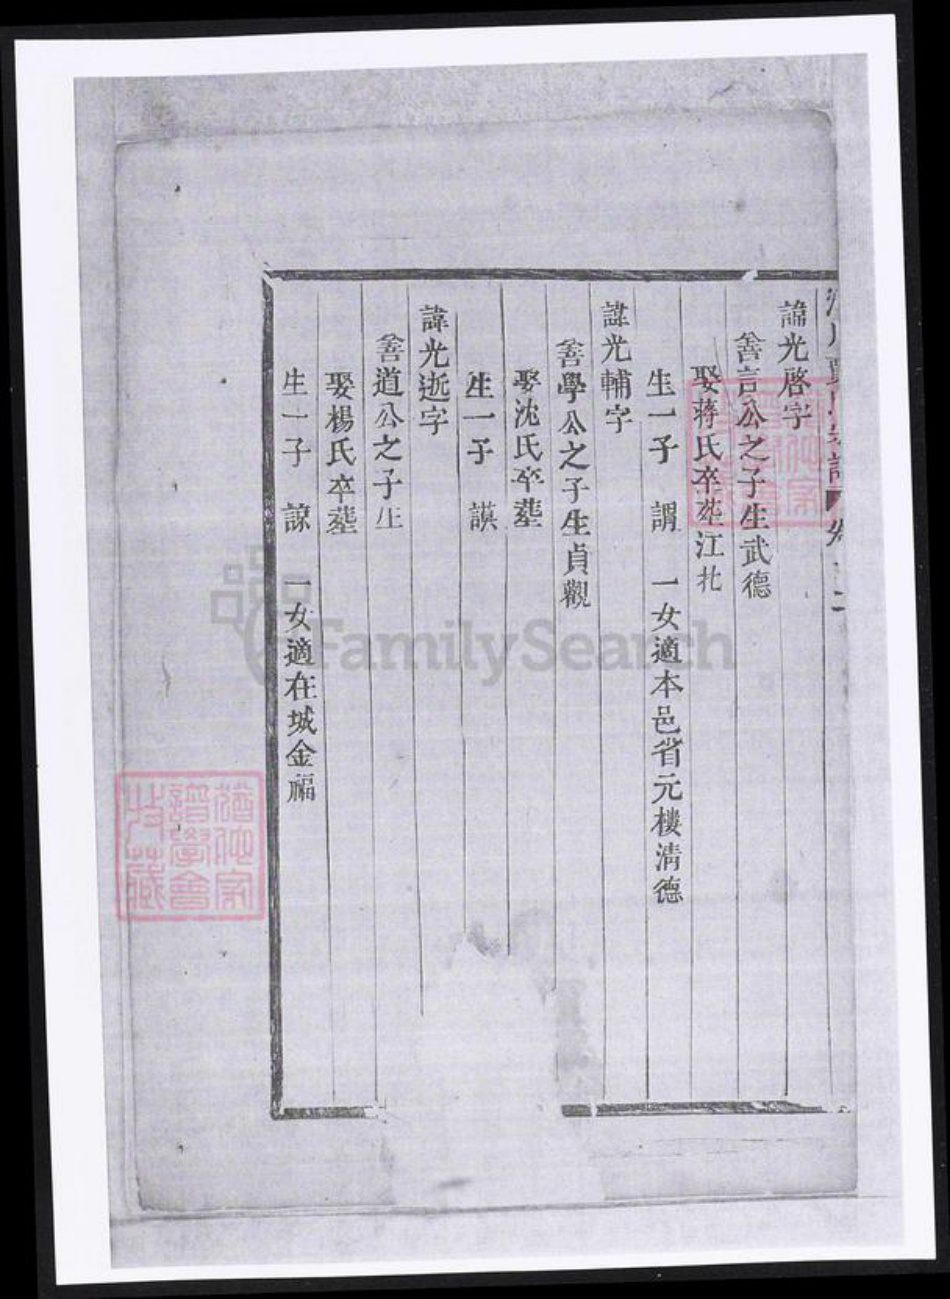 諱光啓字
善言公之子生武德
娶蔣氏卒塟江北
生一子 謂 一女適本邑省元樓淸德
諱光輔字
善學公之子生貞觀
娶沈氏卒塟
生一子 謨
諱光逝字
善道公之子生
娶楊氏卒塟
生一子 諒 一女適在城金福
FamilySearch